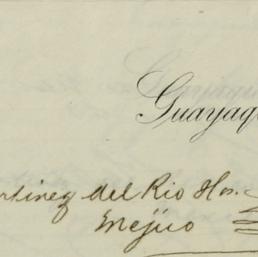 Guayaq
rtinez del Rio Hos.
Mejico